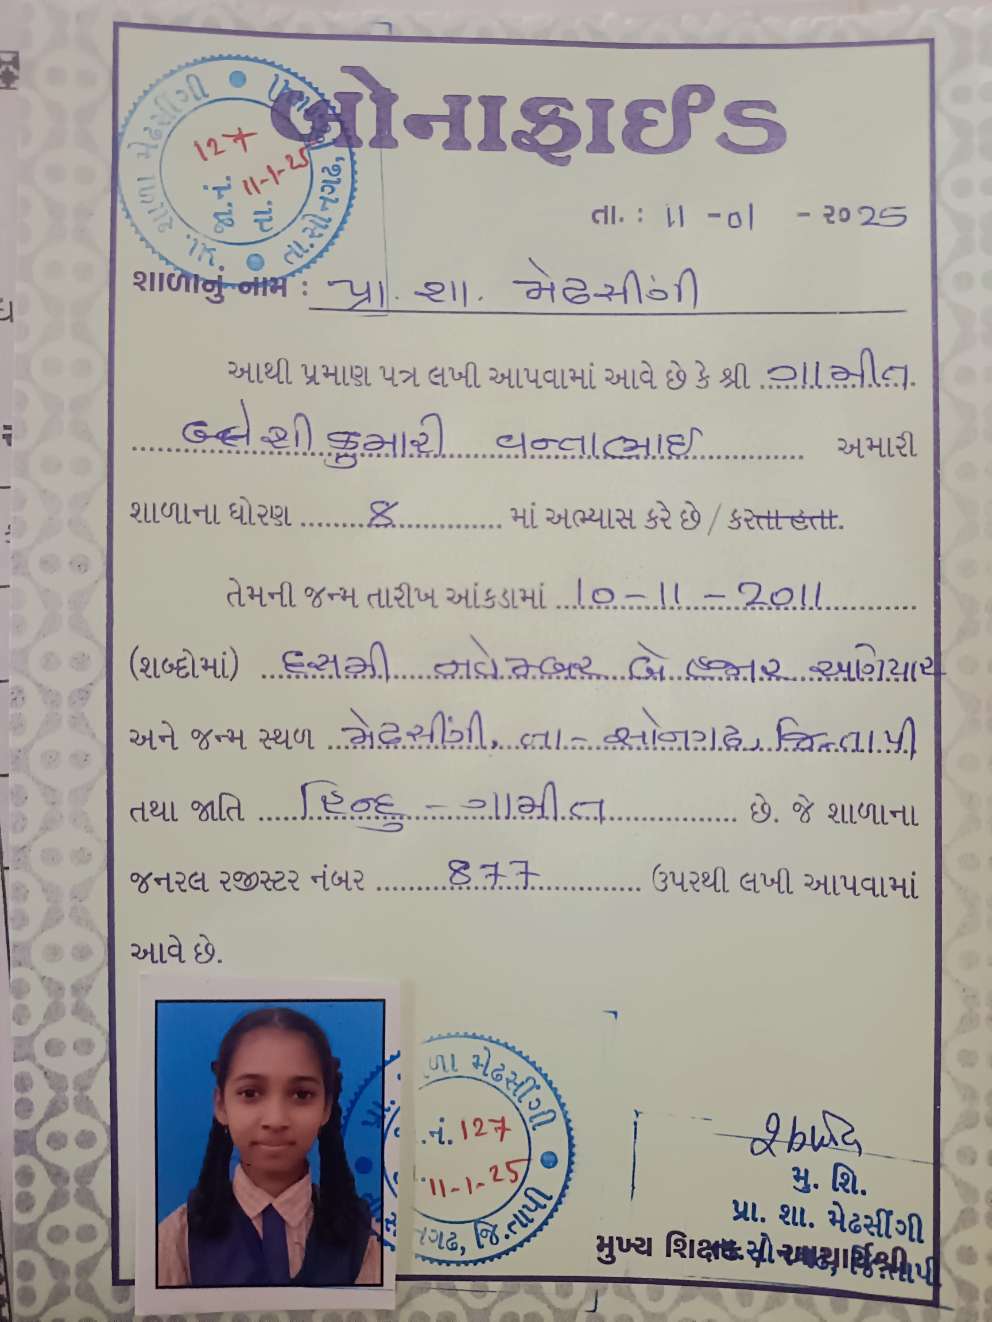 બોનાફાઈડ
પ્રા. શાળા મેઢસીંગી
જા. નં. 127
તા. 11-1-25
તા. સોનગઢ,
તા. : 11 -01 - ૨૦25
શાળાનું નામ : પ્રા. શા. મેઢસીંગી
આથી પ્રમાણ પત્ર લખી આપવામાં આવે છે કે શ્રી ગામીત
શીકુમારી વન્તાભાઈ અમારી
શાળાના ધોરણ 8 માં અભ્યાસ કરે છે / કરતા હતા.
તેમની જન્મ તારીખ આંકડામાં 10-11-2011
(શબ્દોમાં) દસમી નવેમ્બર બે હજાર અગિયાર
અને જન્મ સ્થળ મેઢસીંગી, તા- સોનગઢ, જિ-તાપી
તથા જાતિ હિન્દુ - ગામીત છે. જે શાળાના
જનરલ રજીસ્ટર નંબર 877 ઉપરથી લખી આપવામાં
આવે છે.
ળા મેઢસીંગી
.નં. 127
11-1-25
નગઢ, જિ.તાપી
મુ. શિ.
પ્રા. શા. મેઢસીંગી
મુખ્ય શિક્ષક આચાર્યશ્રી